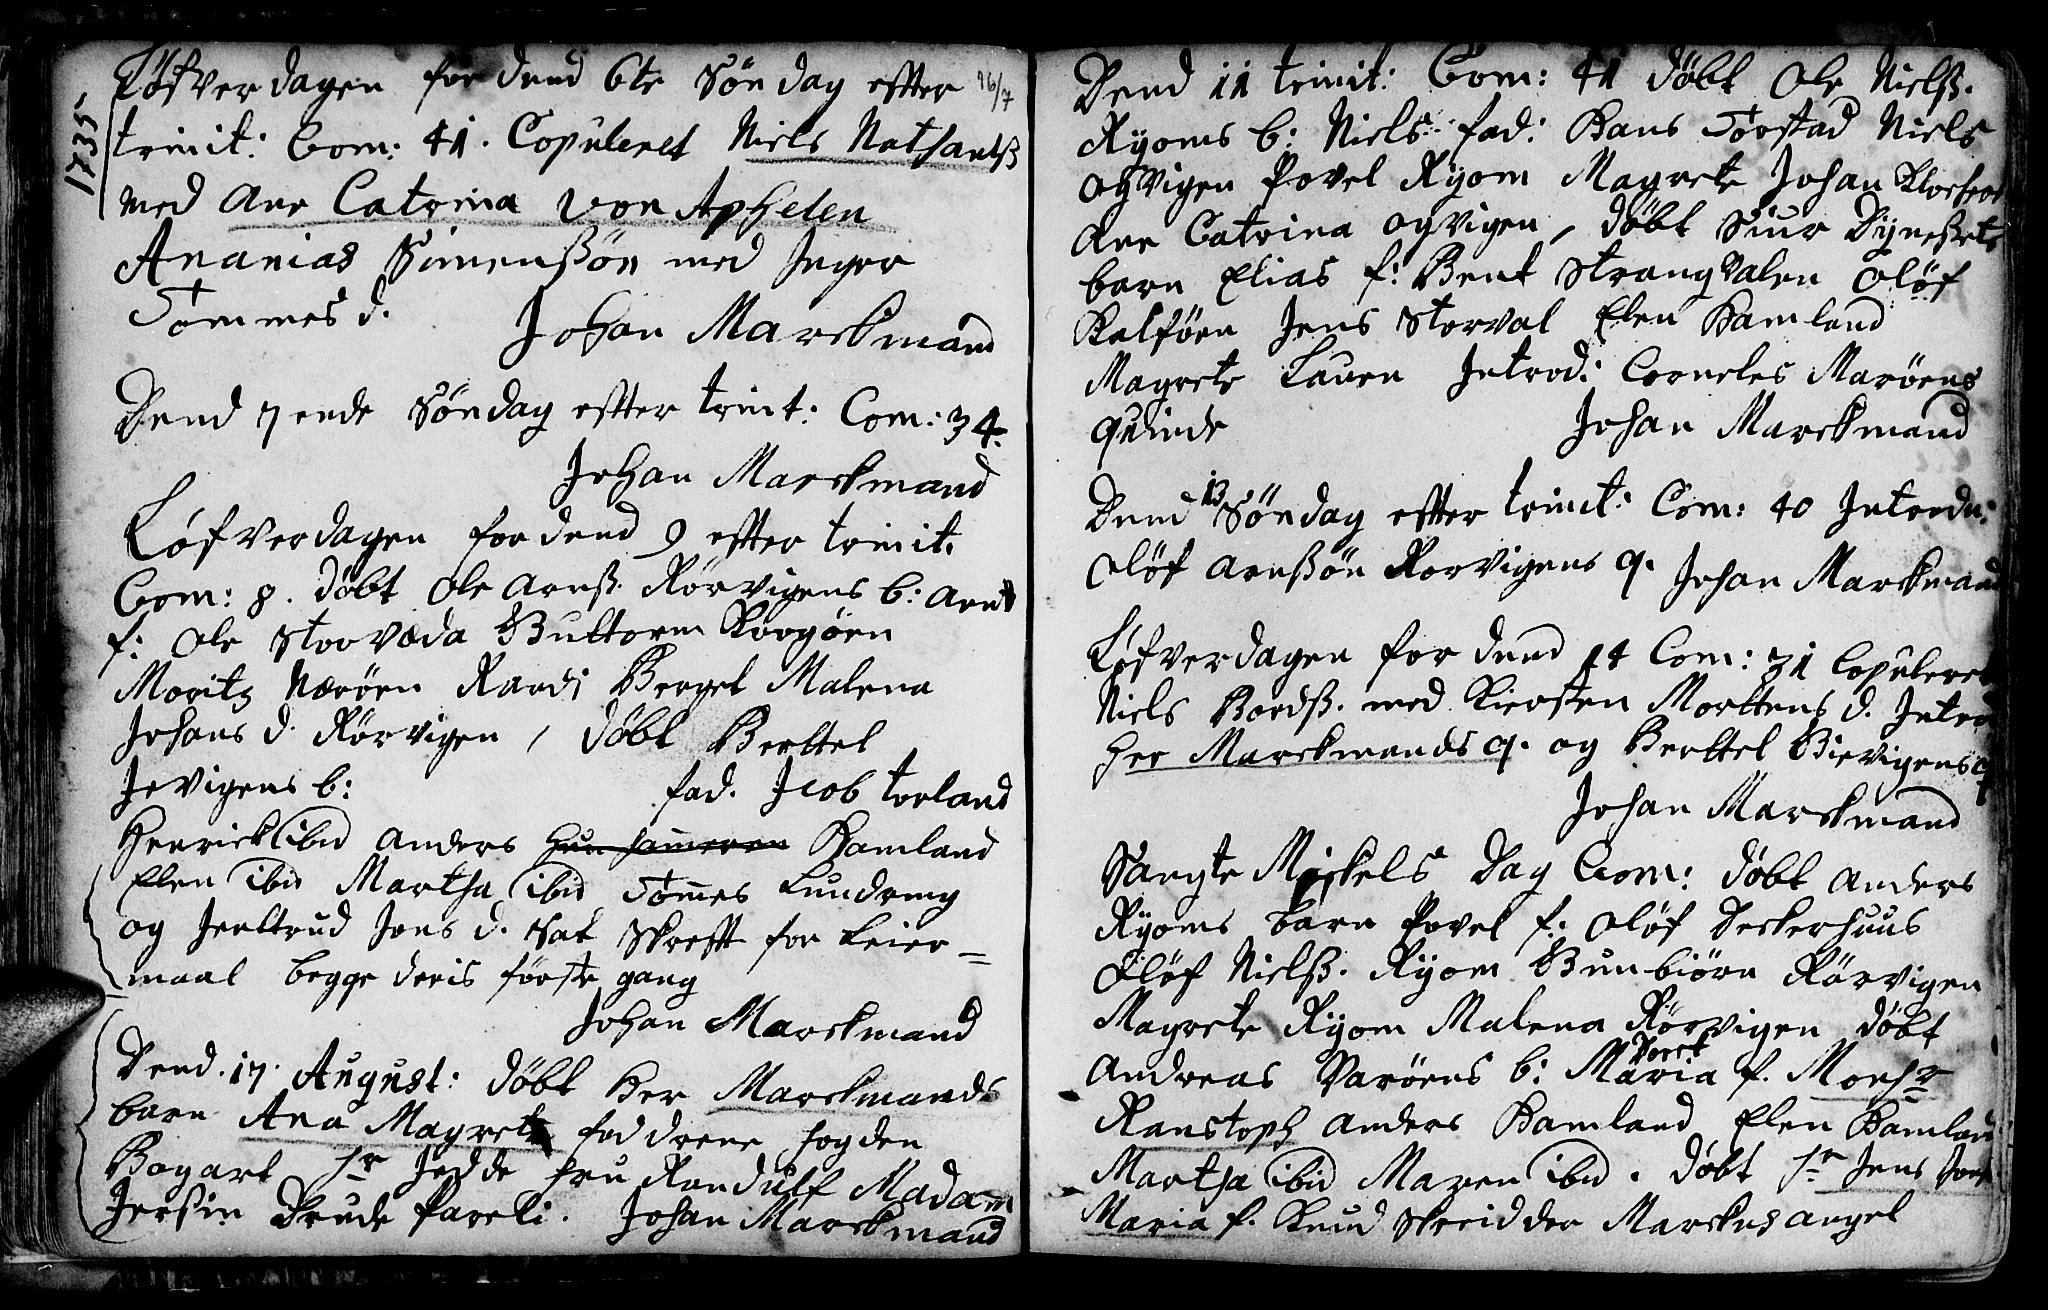 1735
Løfverdagen for dend 6te Søndag effter 16/7
trinit: Com: 41. Copuleret Niels Nathanelß
med Ane Catrina von Aphelen
Ananias Simenßøn med Inger
Tommes d.
Johan Marckmand
Dend 7ende Søndag effter trint: Com: 34.
Johan Marckmand
Løfverdagen for dend 9 effter trinit.
Com: 8. døbt Ole Arnß. Rørvigens b: Arnt
f: Ole Storvæda Guttorm Krogøen
Moritz Nærøen Randi Berget Malena
Johans d. Rørvigen, døbt Berttel
Jevigens b: fad. Jcob torland
Henrick ibid Anders Hamland
Elen ibid Martha ibid Tommes Lundring
og Jerttrud Jens d. stat Skrefft for Leier=
maal begge deris første gang
Johan Marckmand
Dend. 17. August: døbt Her Marckmands
barn Ana Magrete fadderne fogden
Bogart hr Jedde fru Randulf Madam
Jersin Drude Pareli. Johan Marckmand
Dend 11 trinit: Com: 41 døbt Ole Nielß.
Ryoms b: Niels: fad: Hans Torstad Niels
Ogvigen Povel Ryom Magrete Johan
Ane Catrina Ogvigen, døbt Siur
barn Elias f: Bent Strangvalen Oløf
Kalføen Jens Storval Elen Hamland
Magrete Lauen Introd: Corneles Marøens
quinde
Johan Marckmand
Dend 13 Søndag effter trinit: Com: 40 Introdu:
Oløf Arnßøn Rorvigens q. Johan Marckmand
Løfverdagen for dend 14 Com: 31 Copuleret
Niels Bordß. med Kiersten Morttens d. Introd
Her Marckmands q. og Berttel Bievigens q
Johan Marckmand
Sangte Mickels Dag Com: døbt Anders
Ryoms barn Povel f: Oløf Deckerhuus
Oløf Nielß. Ryom Gunbiørn Rørvigen
Magrete Ryom Malena Rørvigen døbt
Andreas Varøens b: Maria Doret f. Monsr
Ranstoph Anders Hamland Elen Hamland
Martha ibid Maren ibid. døbt hr Jens
Maria f. Knud Skreidder Marckus Angel